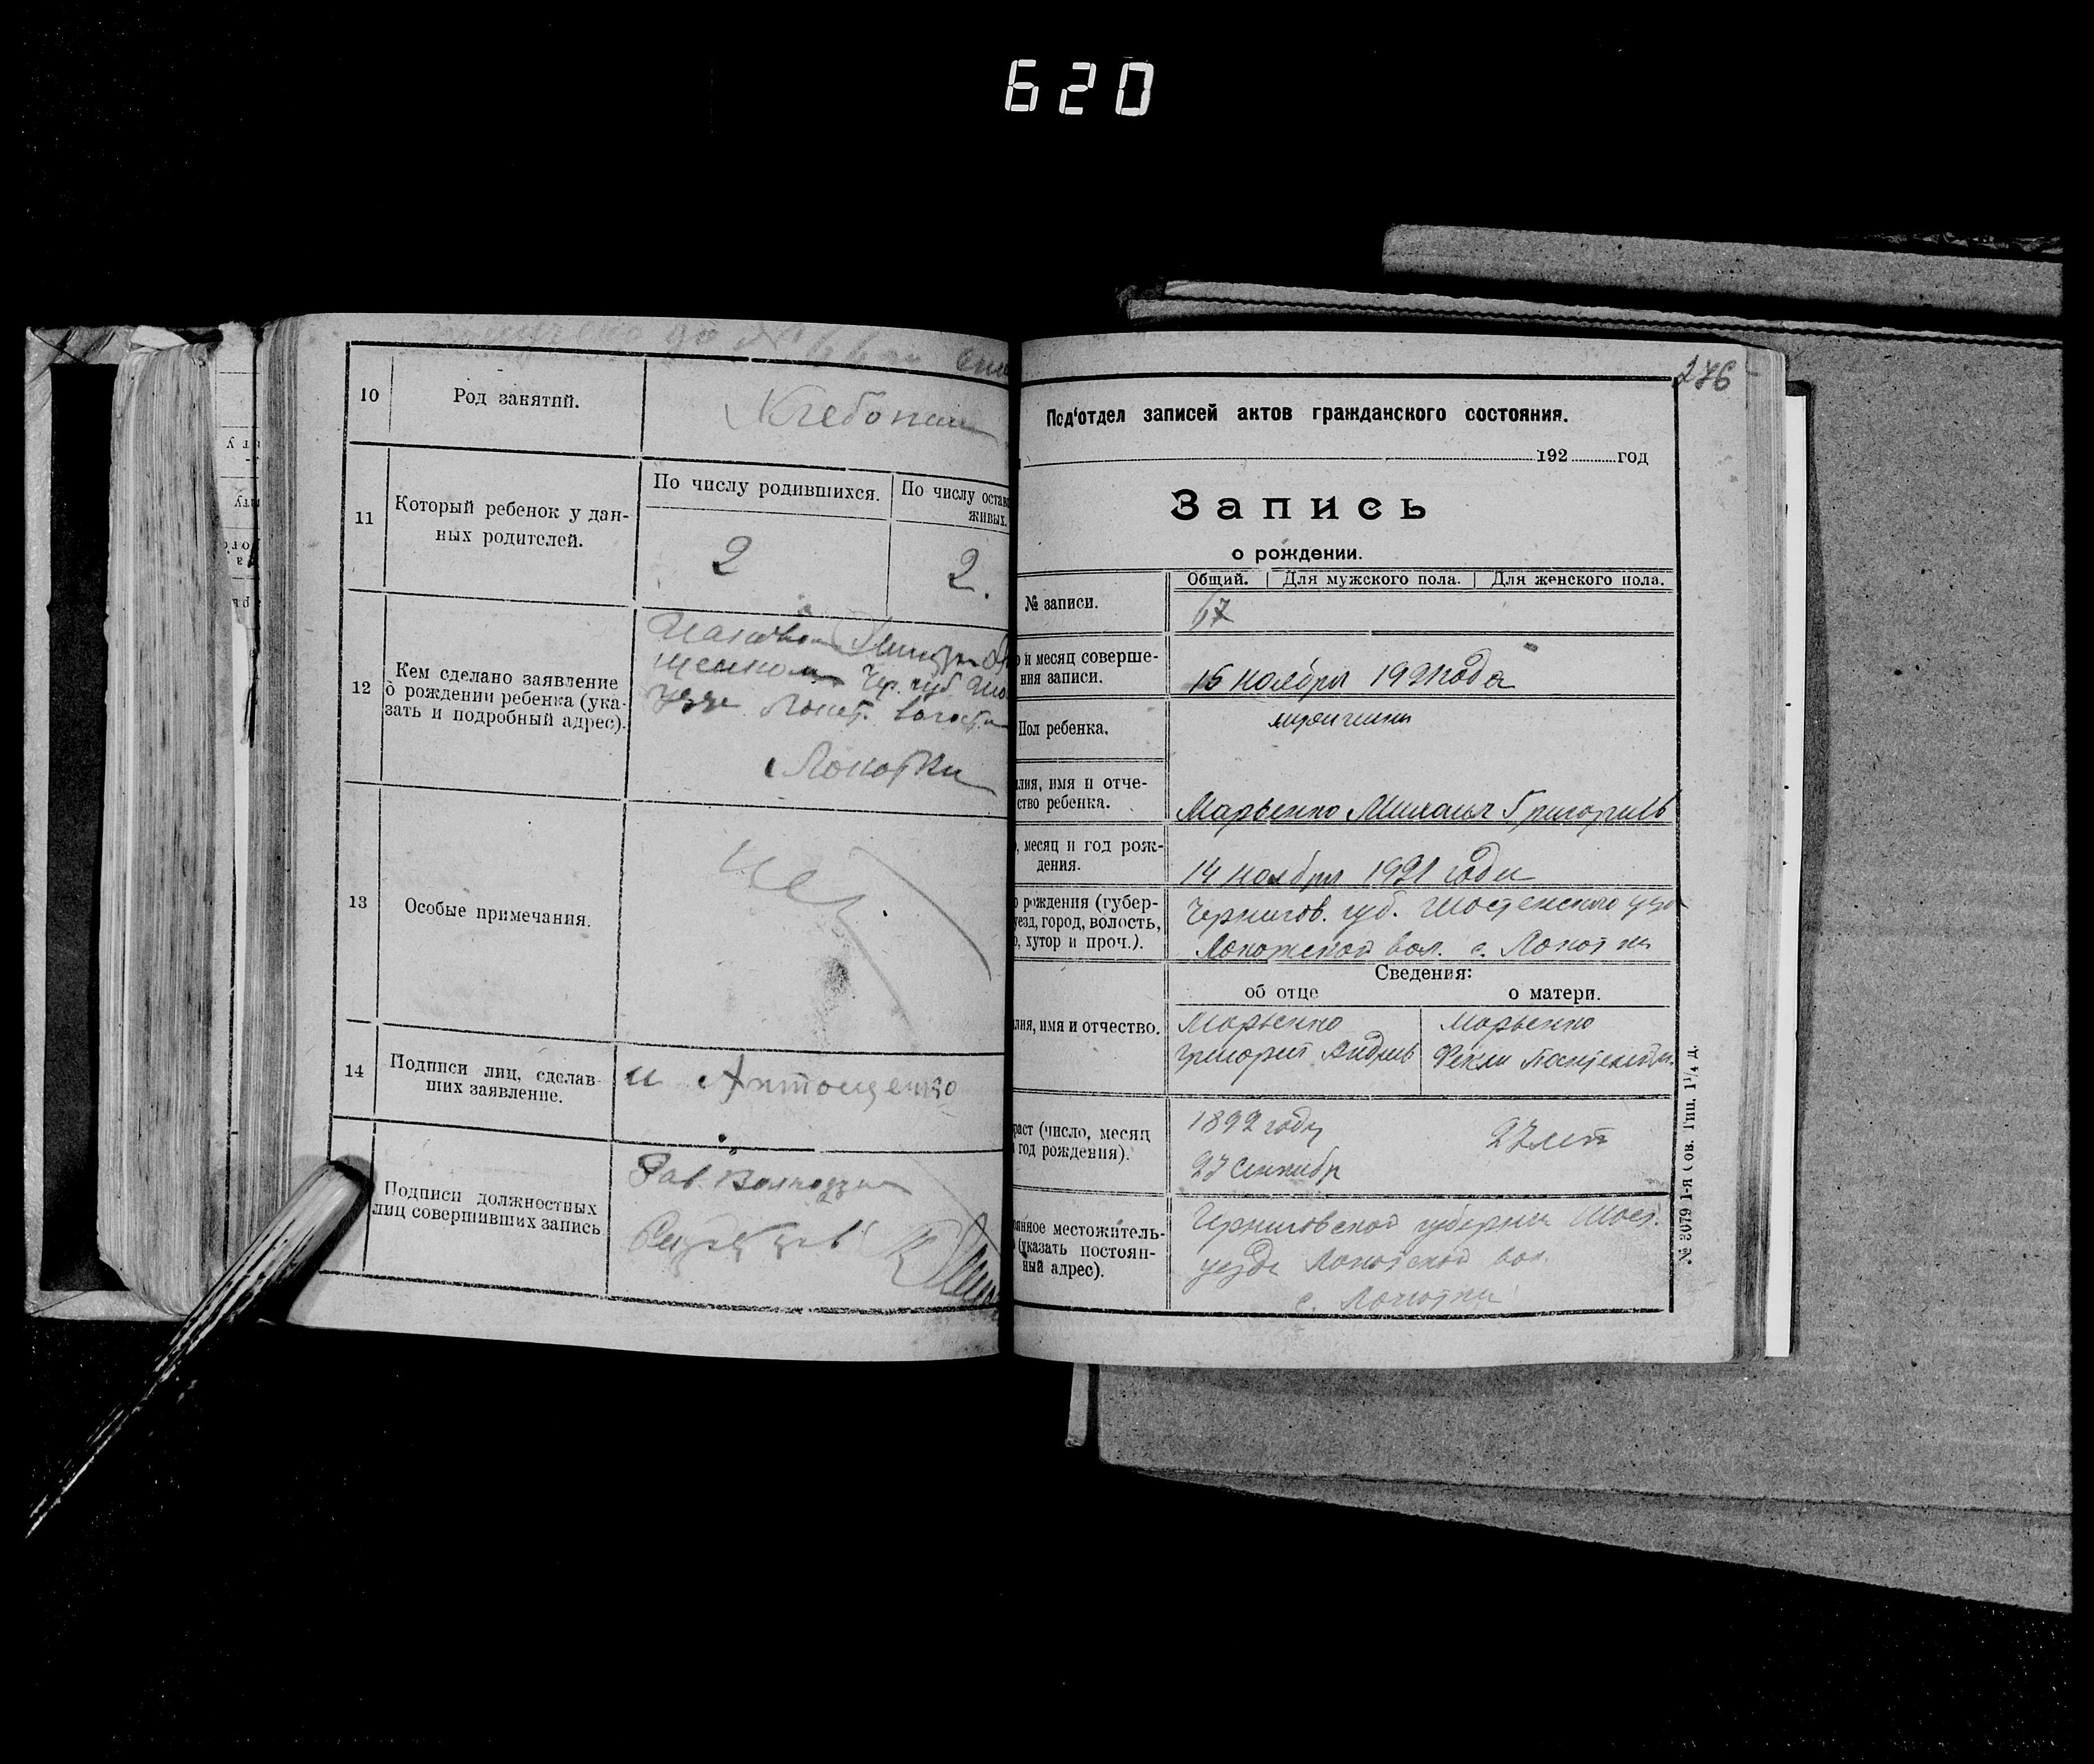 620
10
Род занятий.
Хлебопаш
11
Который ребенок у дан-
ных родителей.
По числу родившихся.
По числу остав
живых.
2
2.
12
Кем сделано заявление
о рождении ребенка (ука-
зать и подробный адрес).
щенком Чер. губ. Шо
Локот. волости
Локотки
13
Особые примечания.
нет
14
Подписи лиц, сделав-
ших заявление.
и Антощенко
Подписи должностных
лиц совершивших запись
Зав.
276
Под'отдел записей актов гражданского состояния.
192 год
Запись
о рождении.
Общий. Для мужского пола. Для женского пола.
№ записи.
67
и месяц соверше-
ния записи.
15 ноября 1921 года
Пол ребенка.
лия, имя и отче-
ство ребенка.
Марьенко Михаил Григорьев
месяц и год рож-
дения.
14 ноября 1921 года
рождения (губер-
уезд, город, волость,
хутор и проч.).
Чернигов. губ. Шостенского
вол. с. Локотки
Сведения:
об отце
о матери.
лия, имя и отчество.
Марьенко
Григорий
Марьенко
Фекла
раст (число, месяц
год рождения).
1892 году
27 Сентябр
27 лет
янное местожитель-
(указать постоян-
ный адрес).
Черниговской губернии Шост.
уезда Локотской вол.
с. Локотки
№ 3079 1-я Сов. Тип. 1¼ д.